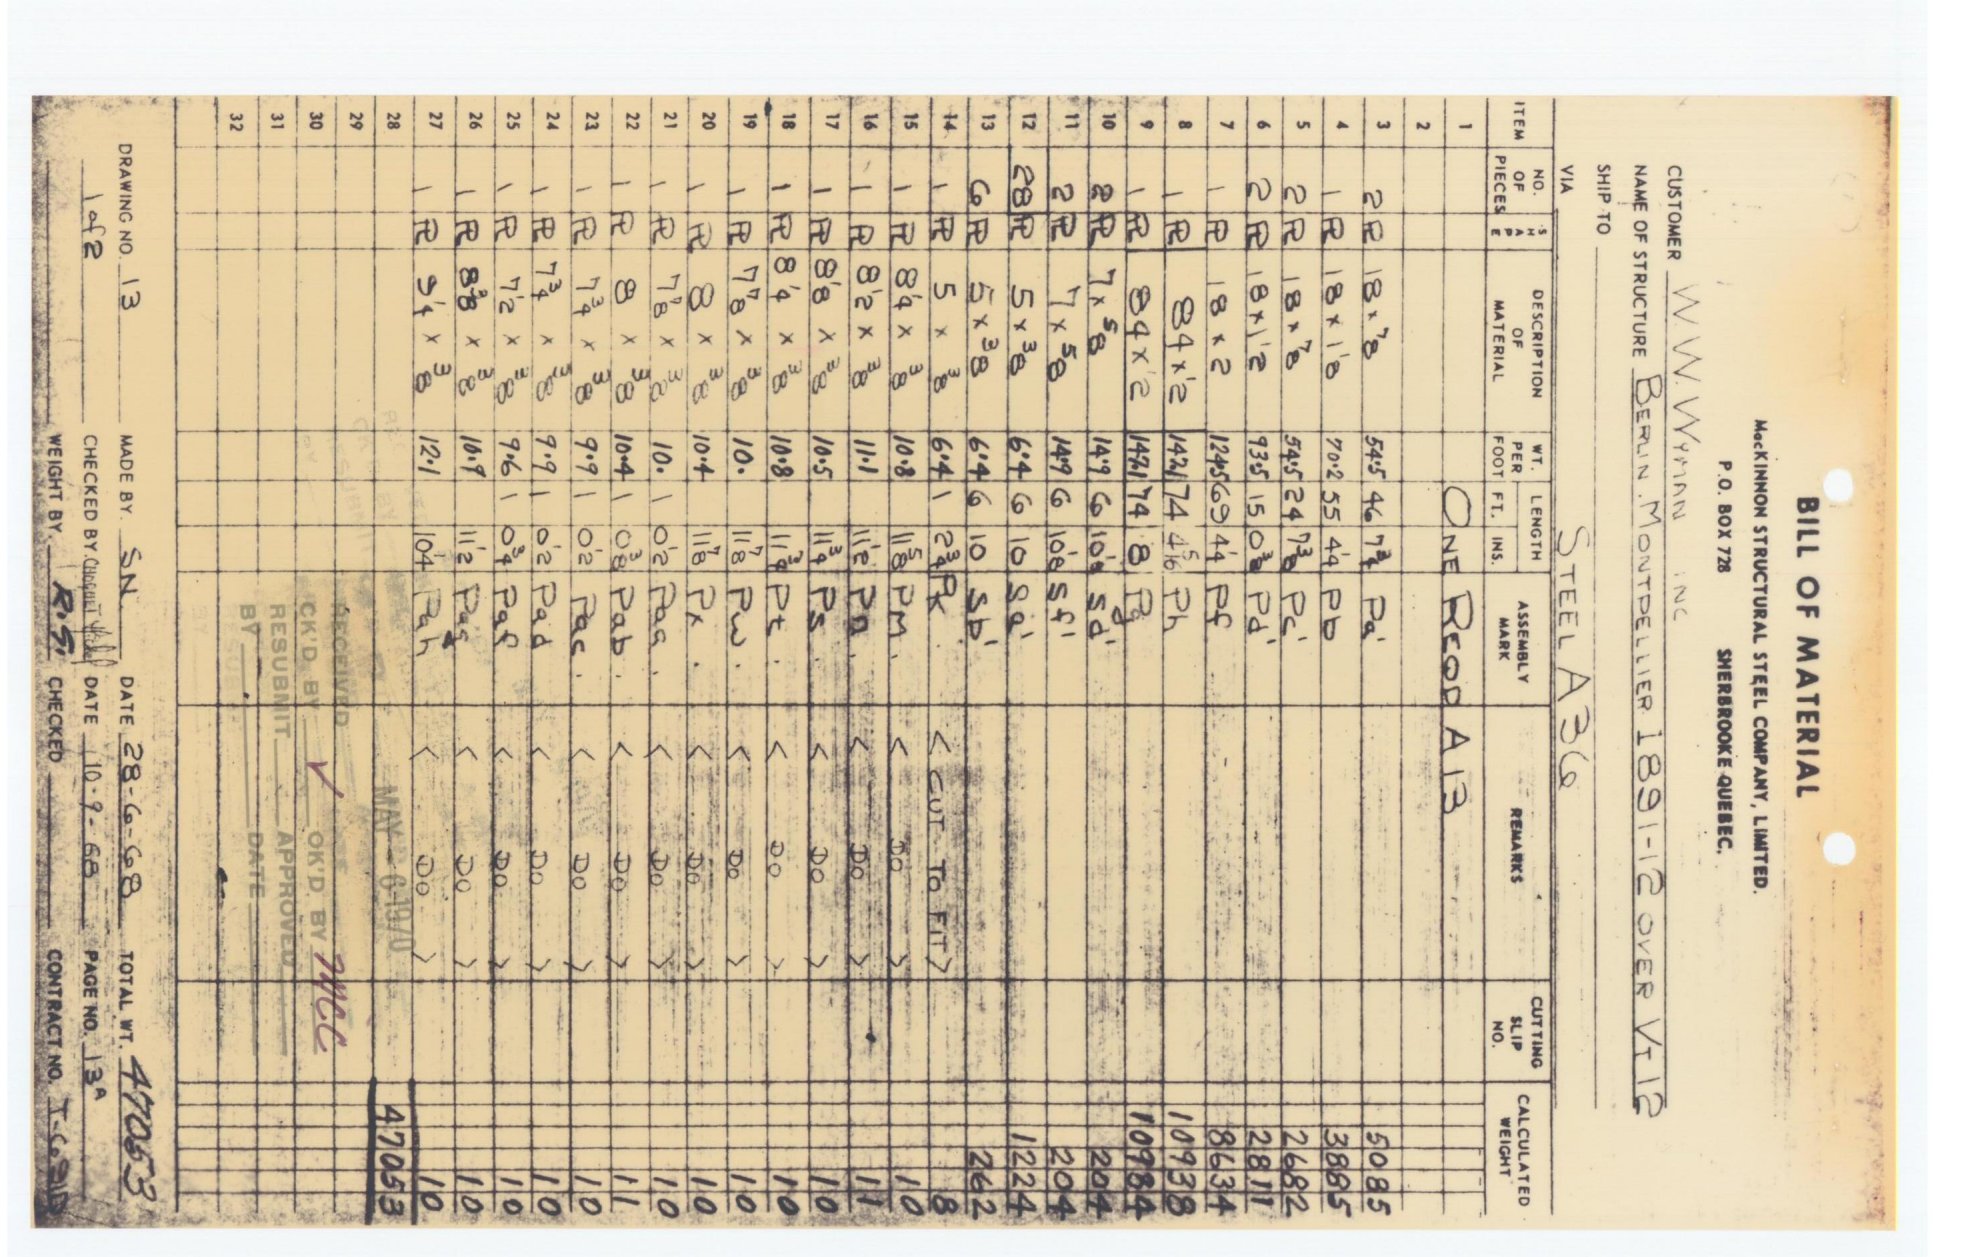 BILL OF MATERIAL
MacKINNON STRUCTURAL STEEL COMPANY, LIMITED.
P.O. BOX 728 SHERBROOKE QUEBEC.
CUSTOMER W.W. WYMAN INC
NAME OF STRUCTURE BERLIN. MONTPELLIER 1891-12 OVER VT 12
SHIP TO
VIA STEEL A36
ITEM NO. OF PIECES SHAPE DESCRIPTION OF MATERIAL WT. PER FOOT LENGTH FT. INS. ASSEMBLY MARK REMARKS CUTTING SLIP NO. CALCULATED WEIGHT
1 ONE REQD A13
2
3 2 PL 18 x 7/8 54.5 46 7 3/4 Pa' 5085
4 1 PL 18 x 1 1/8 70.2 55 4 1/4 Pb 3885
5 2 PL 18 x 7/8 54.5 24 7 3/8 Pc' 2682
6 2 PL 18 x 1 1/2 93.5 15 0 3/8 Pd' 2811
7 1 PL 18 x 2 124.5 69 4 1/4 Pf 8634
8 1 PL 84 x 1/2 142.1 74 4 5/16 Ph 10938
9 1 PL 84 x 1/2 142.1 74 8 Pg 10984
10 2 PL 7 x 5/8 14.9 6 10 1/8 Sd' 204
11 2 PL 7 x 5/8 14.9 6 10 1/8 Sf' 204
12 28 PL 5 x 3/8 6.4 6 10 Sa' 1224
13 6 PL 5 x 3/8 6.4 6 10 Sb' 262
14 1 PL 5 x 3/8 6.4 1 2 3/4 Pk < CUT TO FIT > 8
15 1 PL 8 1/4 x 3/8 10.8 11 5/8 Pm. < DO > 10
16 1 PL 8 1/2 x 3/8 11.1 11 1/2 Pn. < DO > 11
17 1 PL 8 1/8 x 3/8 10.5 11 3/4 Ps < DO > 10
18 1 PL 8 1/4 x 3/8 10.8 11 3/4 Pt < DO > 10
19 1 PL 7 7/8 x 3/8 10. 11 7/8 Pw. < DO > 10
20 1 PL 8 x 3/8 10.4 11 7/8 Px . < DO > 10
21 1 PL 7 7/8 x 3/8 10. 1 0 1/2 Paa . < DO > 10
22 1 PL 8 x 3/8 10.4 1 0 3/8 Pab . < DO > 11
23 1 PL 7 3/4 x 3/8 9.9 1 0 1/2 Pac . < DO > 10
24 1 PL 7 3/4 x 3/8 9.9 1 0 1/2 Pad < DO > 10
25 1 PL 7 1/2 x 3/8 9.6 1 0 3/4 Paf < DO > 10
26 1 PL 8 3/8 x 3/8 10.9 11 1/2 Pag < DO > 10
27 1 PL 9 1/4 x 3/8 12.1 10 1/4 Pah < DO > 10
28 47053
29
30
31
32
MAY - 6 1970
RECEIVED
CK'D BY ✓ OK'D BY MCC
RESUBMIT APPROVED
BY DATE
DRAWING NO. 13 MADE BY. SN. DATE 28-6-68 TOTAL WT. 47053
1 of 2 CHECKED BY. DATE 10-9-68 PAGE NO. 13A
WEIGHT BY. R.S. CHECKED CONTRACT NO.